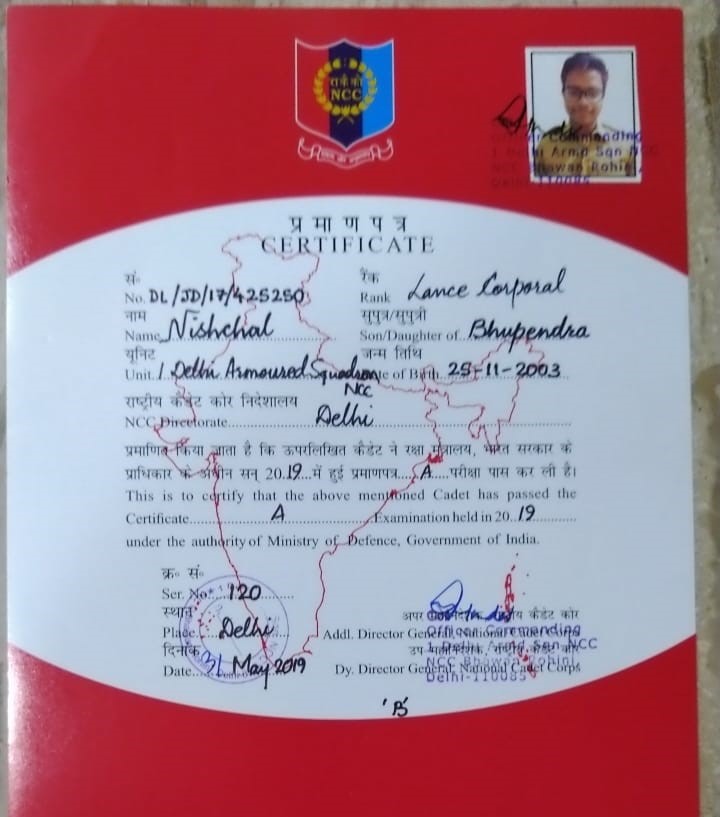 राकैको
NCC
Officer Commanding
1 Delhi Armd Sqn NCC
NCC Bhawan Rohini,
Delhi-110085
प्रमाणपत्र
CERTIFICATE
सं॰ रैंक
No. DL/JD/17/425250 Rank Lance Corporal
नाम सुपुत्र/सुपुत्री
Name Nishchal Son/Daughter of Bhupendra
यूनिट जन्म तिथि
Unit 1 Delhi Armoured Squadron NCC Date of Birth 25-11-2003
राष्ट्रीय कैडेट कोर निदेशालय
NCC Directorate Delhi
प्रमाणित किया जाता है कि ऊपरलिखित कैडेट ने रक्षा मंत्रालय, भारत सरकार के
प्राधिकार के अधीन सन् 2019 में हुई प्रमाणपत्र A परीक्षा पास कर ली है।
This is to certify that the above mentioned Cadet has passed the
Certificate A Examination held in 2019
under the authority of Ministry of Defence, Government of India.
क्र॰ सं॰
Ser. No. 120
स्थान अपर महानिदेशक, राष्ट्रीय कैडेट कोर
Place Delhi Addl. Director General, National Cadet Corps
दिनांक उप महानिदेशक, राष्ट्रीय कैडेट कोर
Date 31 May 2019 Dy. Director General, National Cadet Corps
Officer Commanding
1 Delhi Armd Sqn NCC
NCC Bhawan Rohini,
Delhi-110085
'B'